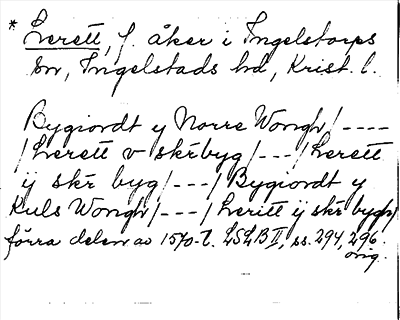 * Lerett, f. åker i Ingelstorps
sn, Ingelstads hd, Krist. l.
Bygiordt y Norre Wongh /----
/ Lerett v skr byg /---/ Lerett
ij skr byg /---/ Bygiordt y
Kuls Wongh /---/ Leritt ij skr bygh /
förra delen av 1570-t. LSLB II, ss. 294, 296.
orig.